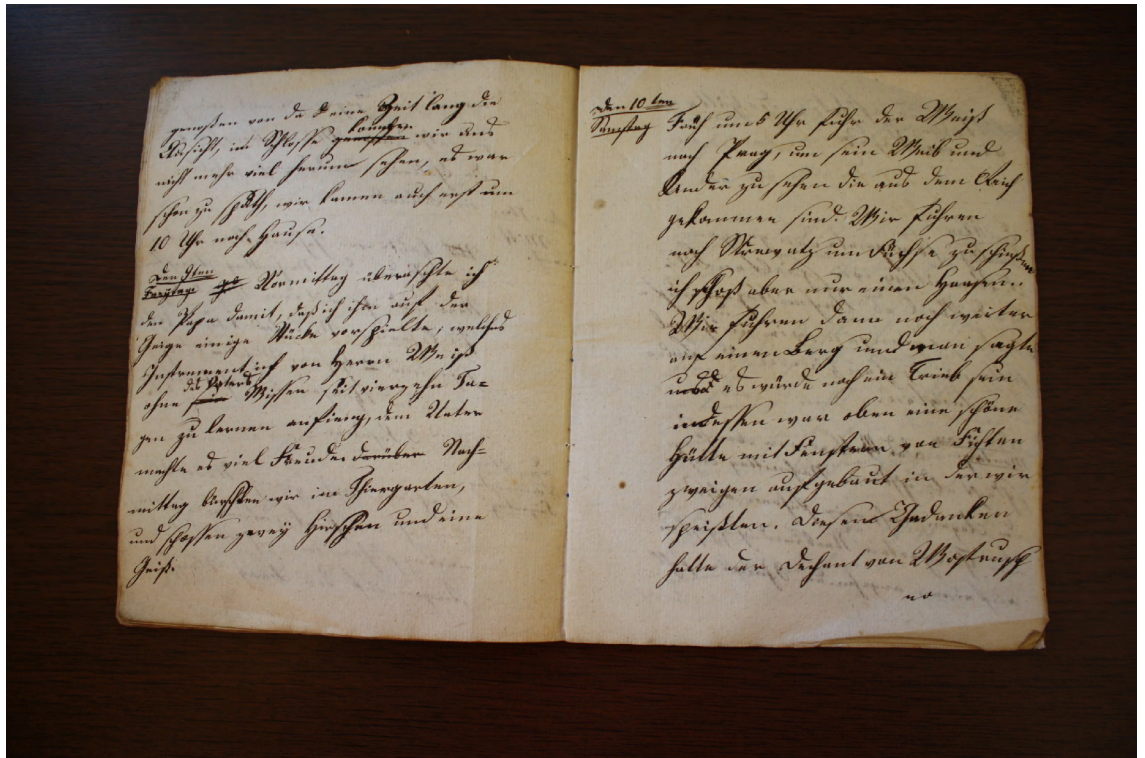 genoßen von da eine Zeit lang die
Aussicht, im Schlosse konnten wir uns
nicht mehr viel herum sehen, es war
schon zu späth, wir kamen auch erst um
10 Uhr nach Hause.
den 9ten
Freytag Vormittag überraschte ich
den Papa damit, daß ich ihm auf der
Geige einige Stücke vorspielte, welches
Instrument ich von Herrn Weiß
des Vaters
ohne Wissen seit vierzehn Ta=
gen zu lernen anfieng, dem Vater
machte es viel Freude darüber Nach=
mittag birschten wir im Thiergarten,
und schossen zwey Hirschen und eine
Geiß.
den 10ten
Samstag Früh um 5 Uhr fuhr der Weiß
nach Prag, um sein Weib und
Kinder zu sehen die aus dem Reich
gekommen sind. Wir fuhren
nach um Füchse zu schießen
ich schoß aber nur einen Haasen.
Wir fuhren dann noch weiter
auf einen Berg und man sagte
es würde noch ein Trieb sein
indessen war oben eine schöne
Hütte mit Fenstern von Fichten
zweigen aufgebaut in der wir
speißten. Diesen Gedanken
hatte der Dechant von